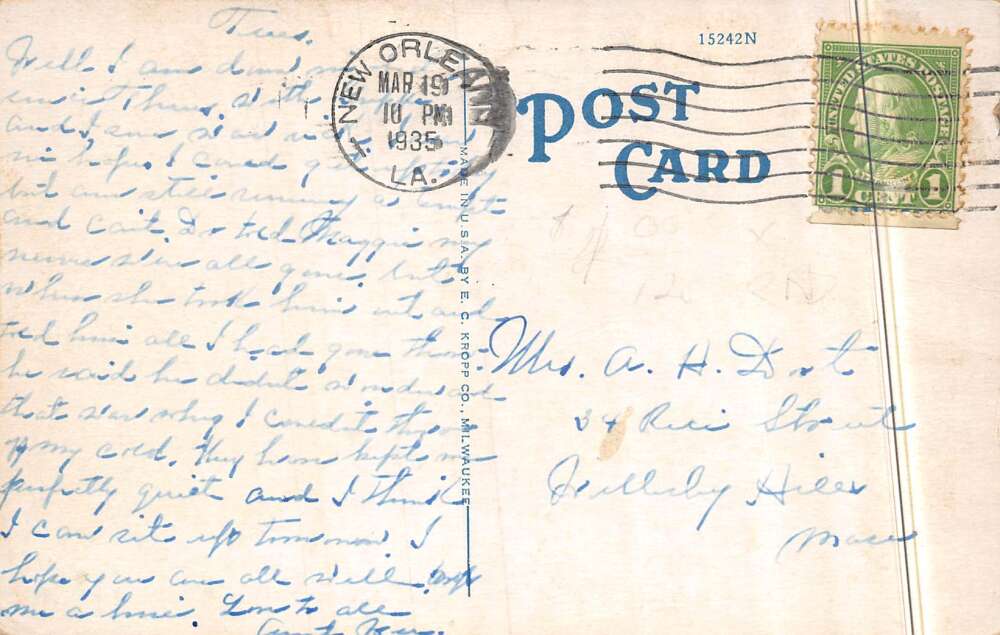 Tues.
Well I am down
in it Thurs. with
and I am
hope. I
but am still running a
and Can't. Dr told Maggie my
nerves were all gone, but
when she took him out and
told him all I had gone throu-
he said he didn't wonder and
that was why I couldn't throw
off my cold. They have kept me
perfectly quiet and I think
I can sit up tomorrow. I
hope you are all well
me a line. Love to all
Aunt
NEW ORLEANS
MAR 19
10 PM
1935
LA.
MADE IN U.S.A. BY E. C. KROPP CO., MILWAUKEE
15242N
POST
CARD
UNITED STATES POSTAGE
1 CENT 1
Mrs. A. H. Dort
24 Rice Street
Wellesley Hills
Mass